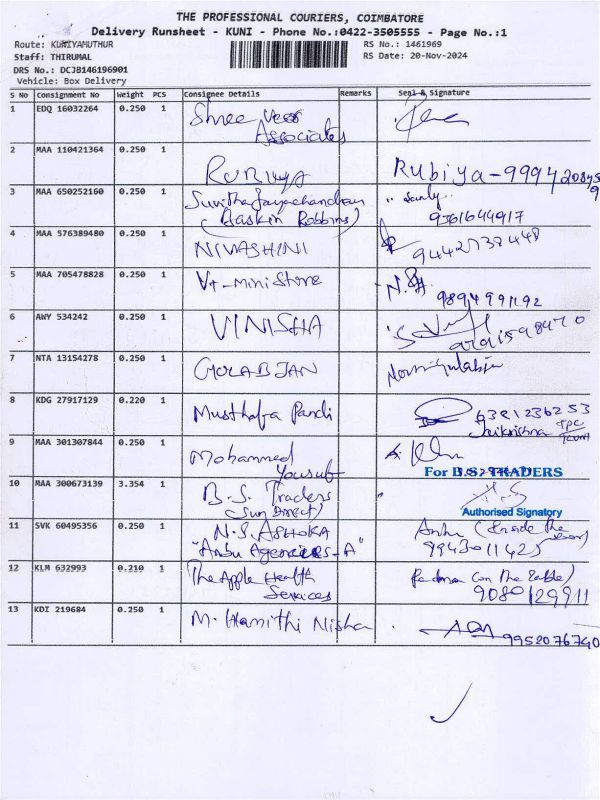 THE PROFESSIONAL COURIERS, COIMBATORE
Delivery Runsheet - KUNI - Phone No.:0422-3505555 - Page No.:1
Route: KUNIYAMUTHUR
RS No.: 1461969
Staff: THIRUMAL
RS Date: 20-Nov-2024
DRS No.: DCJB146196901
Vehicle: Box Delivery
S No Consignment No Weight PCS Consignee Details Remarks Seal & Signature
1 EDQ 16032264 0.250 1 Shree Veer
Associates
2 MAA 110421364 0.250 1 RUBIYA Rubiya-9994208459
3 MAA 650252160 0.250 1 Sunitha Jayachandran
(Baskin Robbins) 9361644917
4 MAA 576389480 0.250 1 NIVASHINI 9442738448
5 MAA 705478828 0.250 1 V+-Mini Store 9894991192
6 AWY 534242 0.250 1 VINISHA
7 NTA 13154278 0.250 1 GOLABJAN
8 KDG 27917129 0.220 1 Musthafa Pandi 6381236253
Jaikrishna
9 MAA 301307844 0.250 1 Mohammed
Yousuf
For B.S. TRADERS
10 MAA 300673139 3.354 1 B.S. Traders
(Sun Direct)
Authorised Signatory
11 SVK 60495356 0.250 1 N.S. ASHOKA Anbu (Inside the door)
"Anbu Agencies-A" 9943011425
12 KLM 632993 0.210 1 The Apple Health Padma (on the table)
Services 9080129911
13 KDI 219684 0.250 1 M. Hamithi Nisha 9952076740